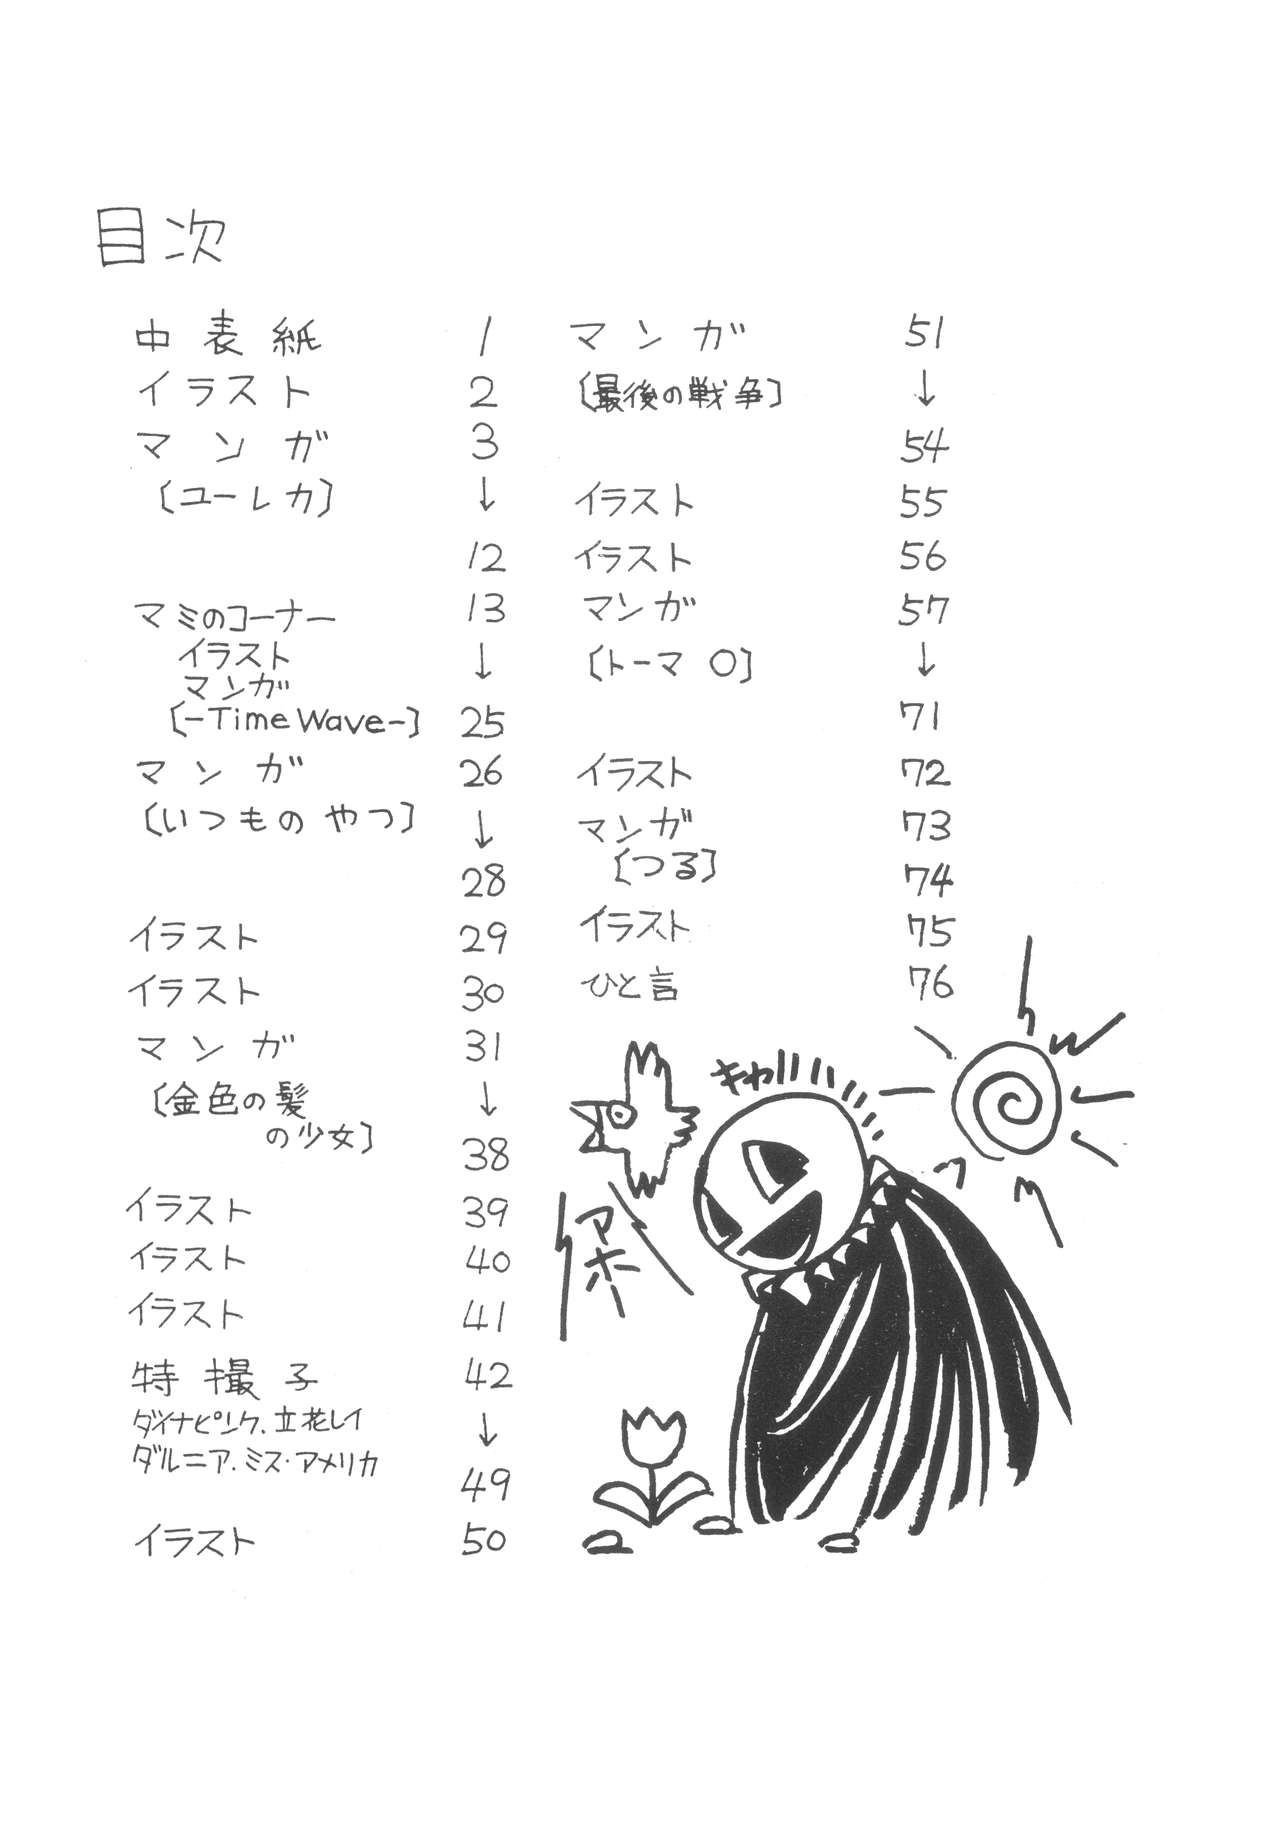 目次
中表紙 1
イラスト 2
マンガ 3
〔ユーレカ〕 ↓
12
マミのコーナー 13
イラスト ↓
マンガ
〔-Time Wave-〕 25
マンガ 26
〔いつものやつ〕 ↓
28
イラスト 29
イラスト 30
マンガ 31
〔金色の髪 ↓
の少女〕
38
イラスト 39
イラスト 40
イラスト 41
特撮子 42
ダイナピンク、立花レイ ↓
ダルニア、ミス・アメリカ
49
イラスト 50
マンガ 51
〔最後の戦争〕 ↓
54
イラスト 55
イラスト 56
マンガ 57
〔トーマ O〕 ↓
71
イラスト 72
マンガ 73
〔つる〕 74
イラスト 75
ひと言 76
アホー